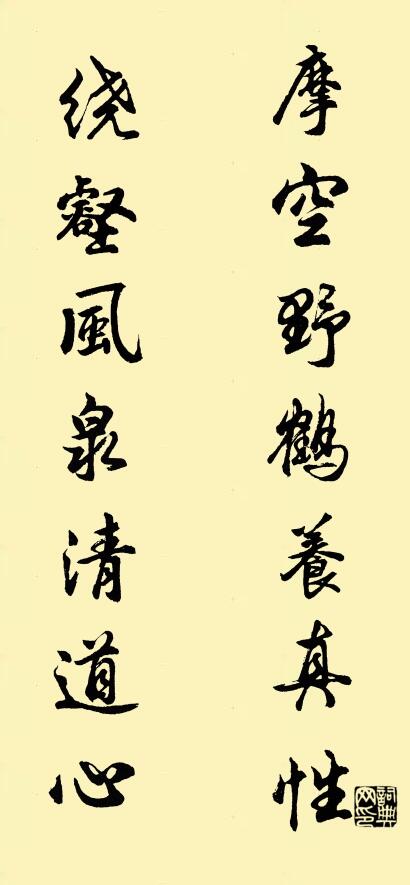 摩空野鹤養真性
绕壑風泉清道心
詞典网印